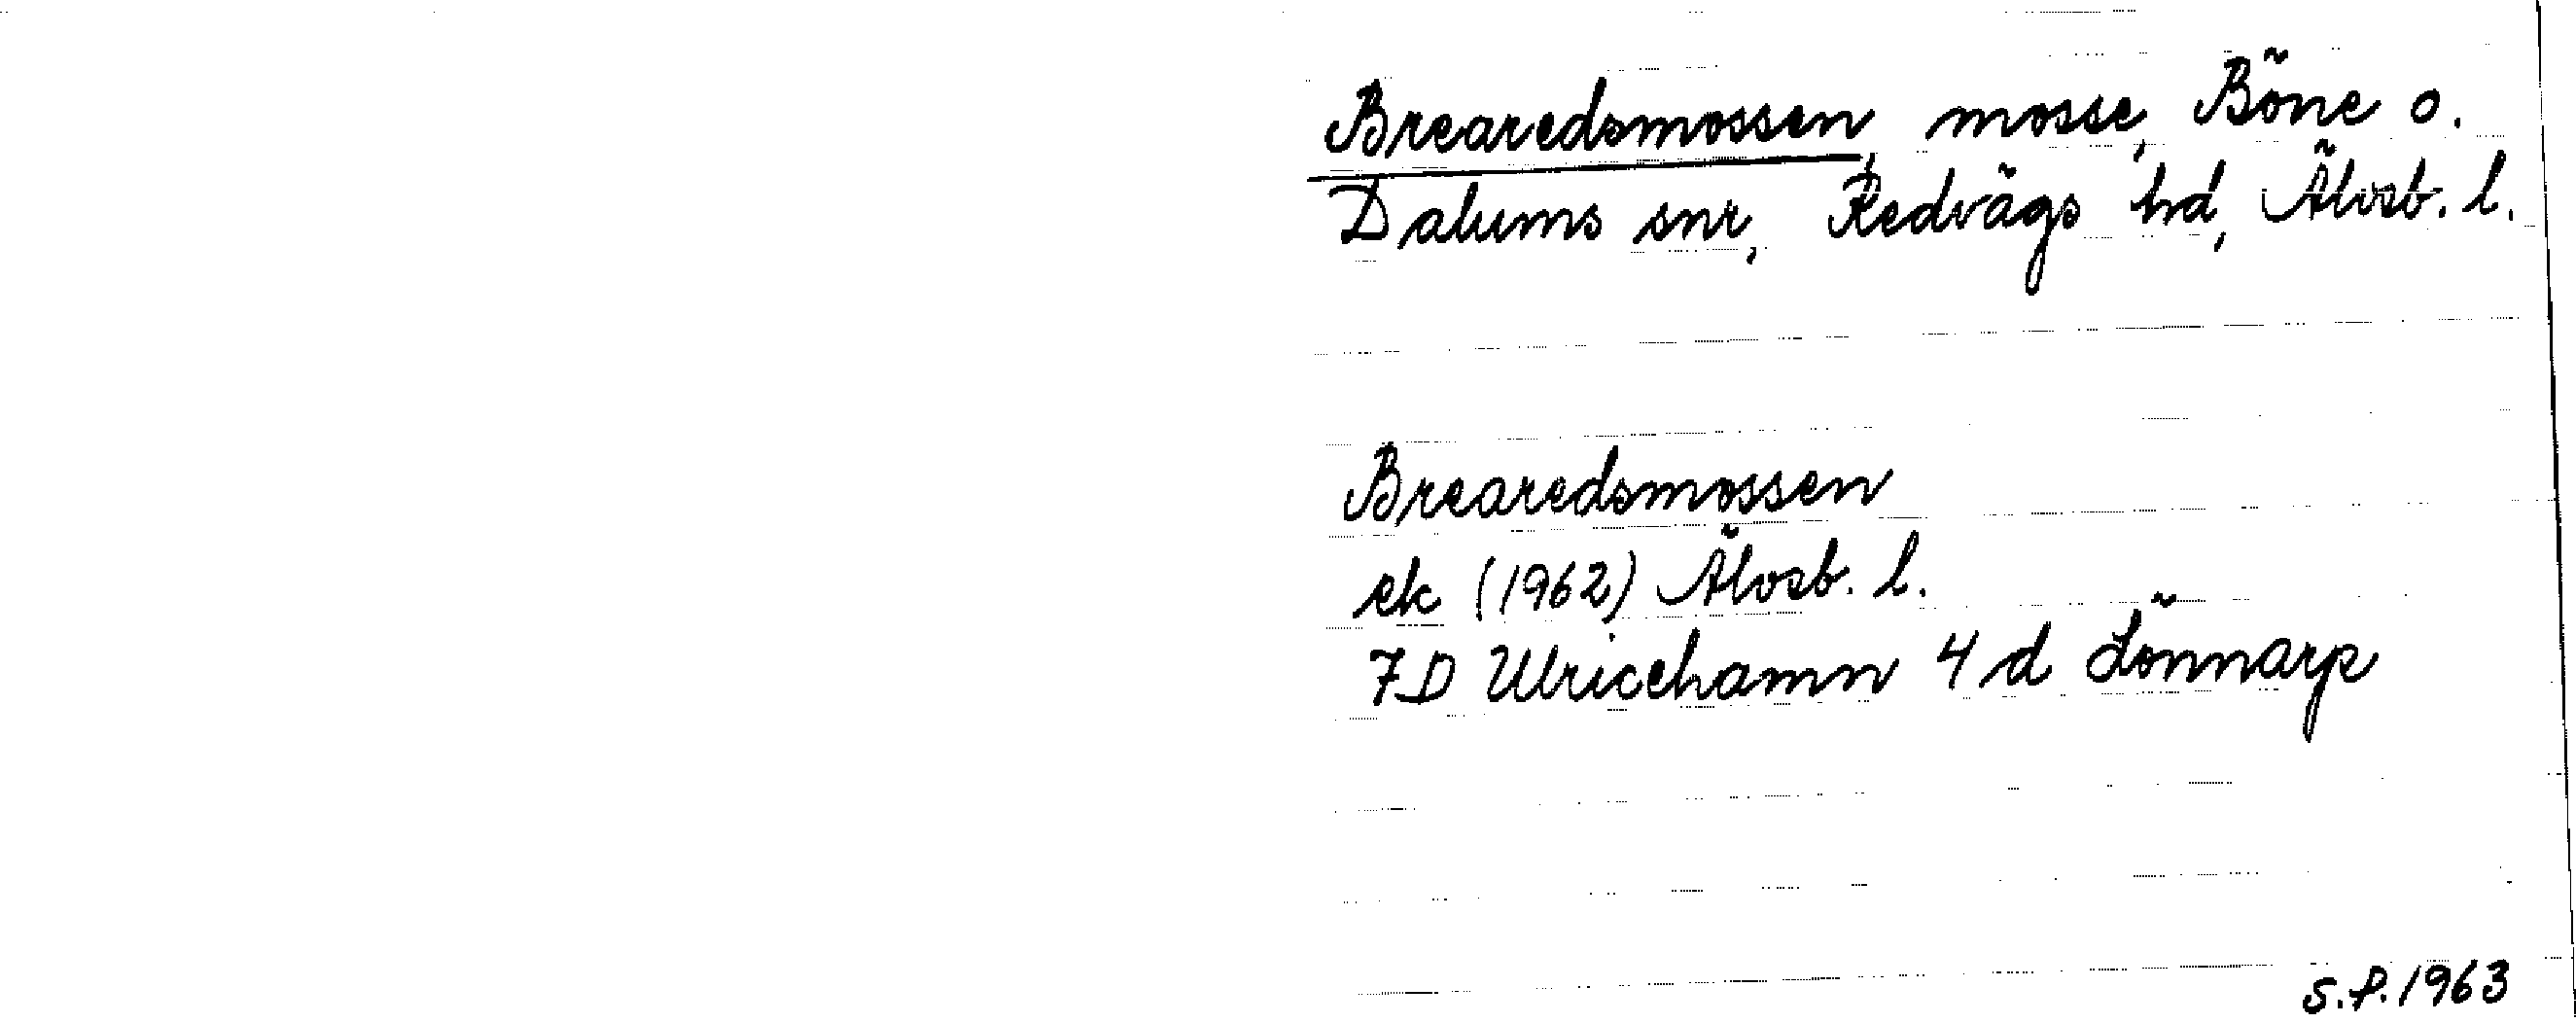 Brearedsmossen, mosse, Böne o.
Dalums snr, Redvägs hd, Älvsb. l.
Brearedsmossen
ek (1962) Älvsb. l.
7D Ulricehamn 4 d Lönnarp
S.P. 1963